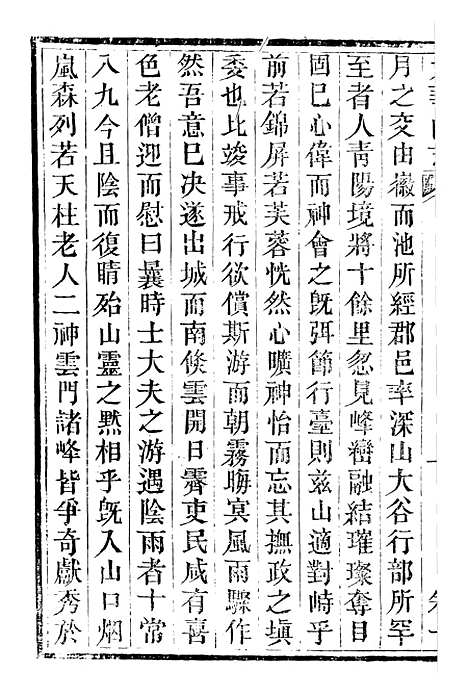 月之交由徽而池所經郡邑率深山大谷行部所罕
至者人青陽境將十餘里忽見峰巒融結璀璨奪目
固已心偉而神會之既弭節行臺則茲山適對峙乎
前若錦屏若芙蓉恍然心曠神怡而忘其撫政之塡
委也比竣事戒行欲償斯游而朝霧晦冥風雨驟作
然吾意已决遂出城而南倏雲開日霽吏民咸有喜
色老僧迎而慰曰曩時士大夫之游遇陰雨者十常
八九今且陰而復晴殆山靈之黙相乎既入山口烟
嵐森列若天柱老人二神雲門諸峰皆爭奇獻秀於